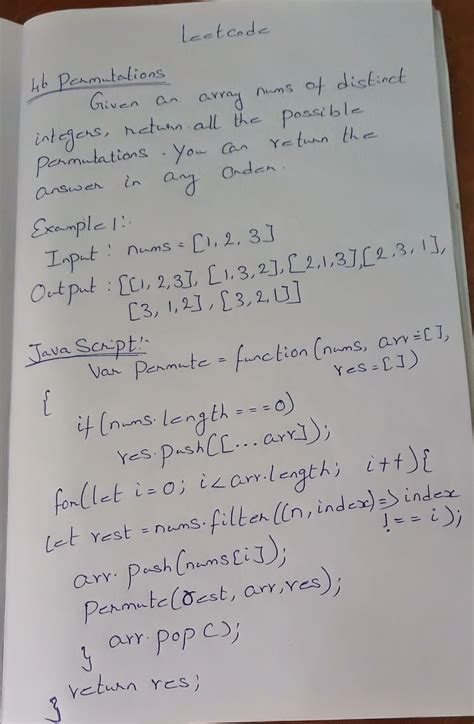 leetcode
46 Permutations
Given an array nums of distinct
integers, return all the possible
permutations. You can return the
answer in any order.
Example 1:-
Input : nums = [1, 2, 3]
Output : [[1, 2, 3], [1, 3, 2], [2, 1, 3], [2, 3, 1],
[3, 1, 2], [3, 2, 1]]
JavaScript:-
Var Permute = function (nums, arr = [],
res = [])
{
if (nums.length === 0)
res.push([...arr]);
for(let i = 0; i < arr.length; i++){
let rest = nums.filter((n, index) => index
!== i);
arr.push(nums[i]);
Permute(rest, arr, res);
arr.pop();
}
return res;
}